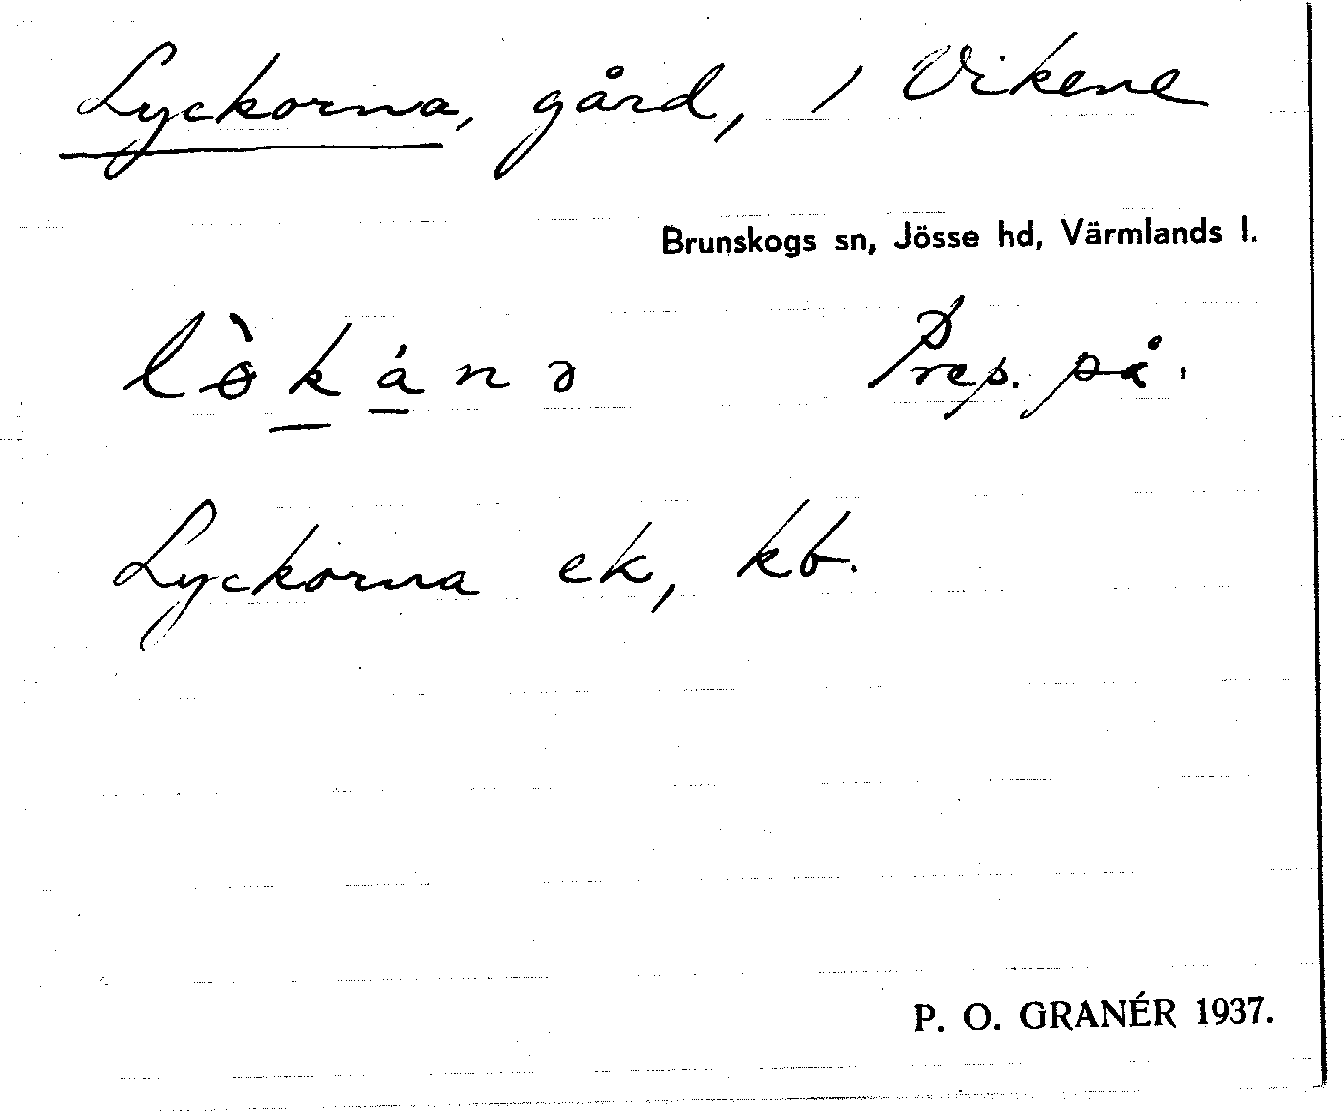 Lyckorna, gård, i Vikene
Brunskogs sn, Jösse hd, Värmlands l.
lø̀kánə Prep. på.
Lyckorna ek, kb.
P. O. GRANÉR 1937.